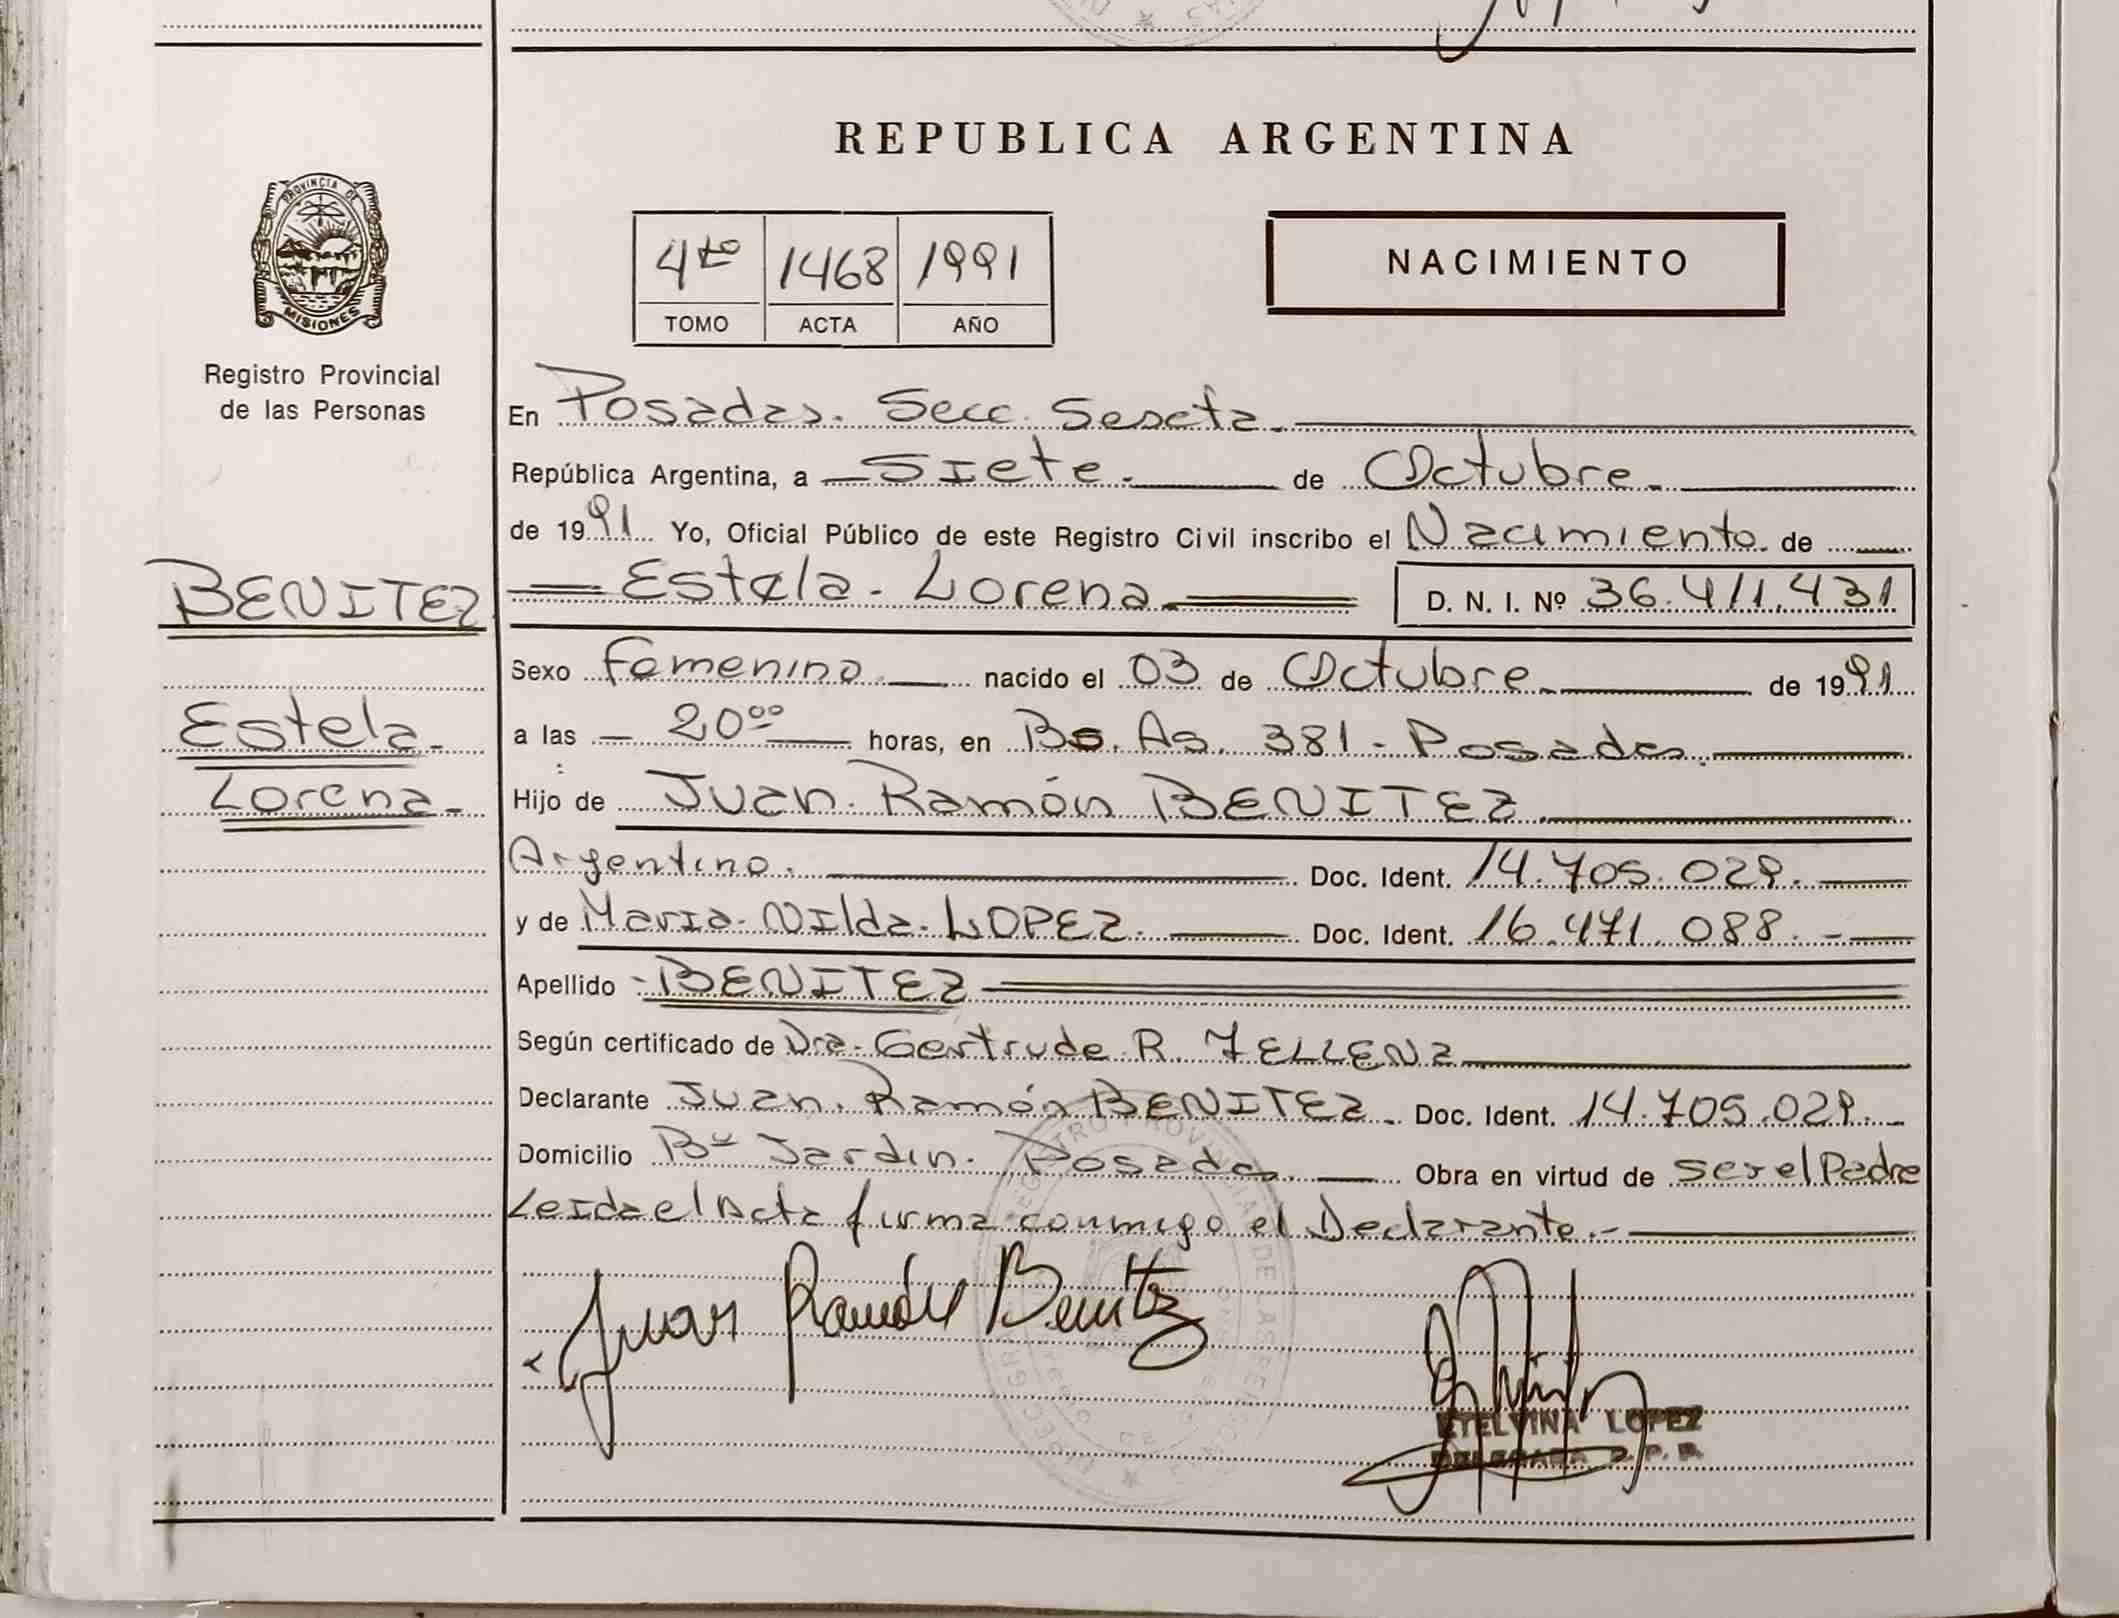 REPUBLICA ARGENTINA
PROVINCIA DE
MISIONES
Registro Provincial
de las Personas
4to 1468 1991
TOMO ACTA AÑO
NACIMIENTO
En Posadas. Secc. Sexta.
República Argentina, a Siete. de Octubre.
de 1991 Yo, Oficial Público de este Registro Civil inscribo el Nacimiento de
BENITEZ
Estela Lorena D. N. I. Nº 36.411.431
Sexo Femenino nacido el 03 de Octubre de 1991
Estela
a las 20 00 horas, en Bs. As. 381 - Posadas
Lorena
Hijo de Juan Ramón BENITEZ
Argentino. Doc. Ident. 14.705.029.
y de Maria Nilda LOPEZ. Doc. Ident. 16.471.088.
Apellido BENITEZ
Según certificado de Dra. Gertrude R.
Declarante Juan Ramón BENITEZ Doc. Ident. 14.705.029.
Domicilio Bº Jardin. Posadas Obra en virtud de ser el Padre
Leida el Acta firma conmigo el Declarante.-
Juan Ramón Benitez
ETELVINA LOPEZ
DELEGADA